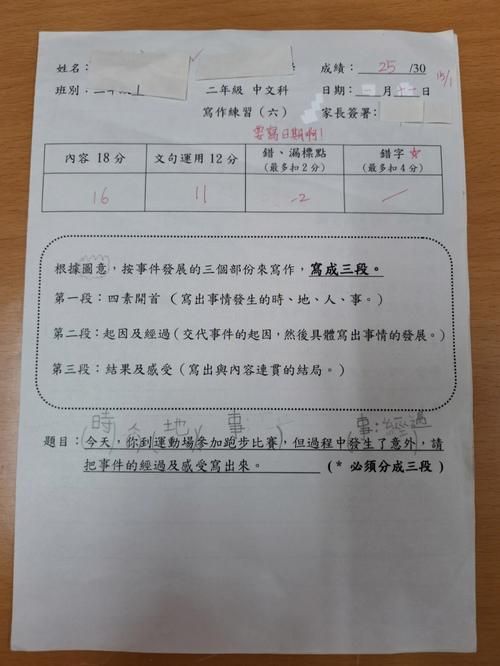 姓名： 成績： 25 /30
15/1
班別： 二年級 中文科 日期： 一 月 十一 日
寫作練習（六） 家長簽署：
要寫日期啊！
內容 18 分 文句運用 12 分 錯、漏標點 錯字 ☆
（最多扣 2 分） （最多扣 4 分）
16 11 -2 —
根據圖意，按事件發展的三個部份來寫作，寫成三段。
第一段：四素開首（寫出事情發生的時、地、人、事。）
第二段：起因及經過（交代事件的起因，然後具體寫出事情的發展。）
第三段：結果及感受（寫出與內容連貫的結局。）
時 地 事： 事：經過
題目：今天，你到運動場參加跑步比賽，但過程中發生了意外，請
把事件的經過及感受寫出來。 （* 必須分成三段）